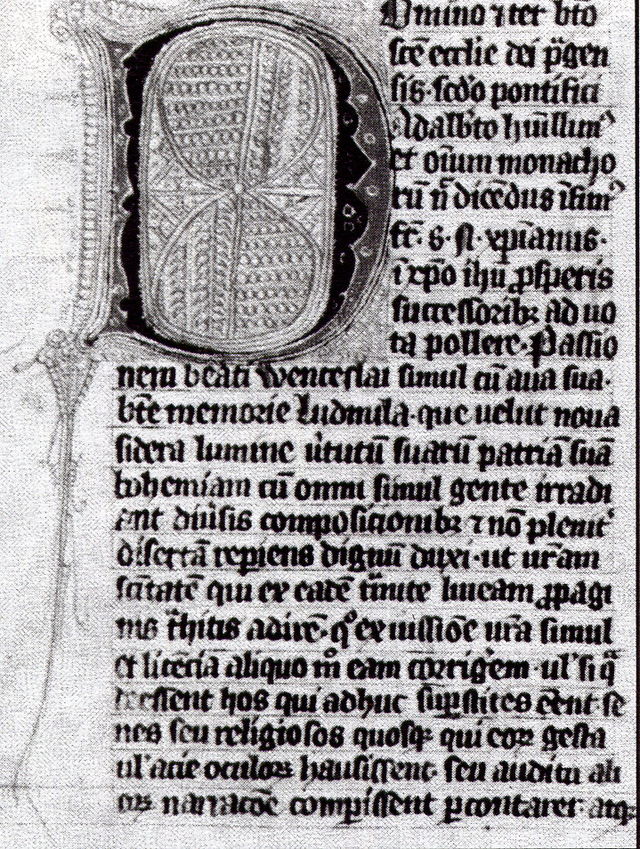 Domino ⁊ ter bt̄o
sc̄e ecclie dei p̄gen
sis· scd̓o pontifici
Adalbt̓o hūillim᷒
et oīum monacho
rū n̄ dicēdus īfim᷒
fr̄· s· xp̄ianus·
i xp̄o ih̄u ꝓsperis
successoribꝫ ad uo
ta pollere· Passio
nem beati Wenceslai simul cū aua sua·
bt̄e memorie Ludmila· que uelut noua
sidera lumine ūtutū suarū patriā suā
bohemiam cū omni simul gente irradi
ant diūsis compositionibꝫ ⁊ nō plenit᷒
disertā repiens dignū duxi· ut ur̄am
sc̄itatē qui ex eadē linee ꝓpagi
nis adirē· qͦ ex iussiōe ur̄a simul
et licēcia aliquo m̄ eam corrigerem· ul̓ si q̄
deessent hos qui adhuc suꝑstites eēnt se
nes seu religiosos quosqꝫ qui eoꝝ gesta
ul̓ acie oculoꝝ hausissent· seu auditu ali
oꝝ narracōe compissent ꝑcontarer atqꝫ